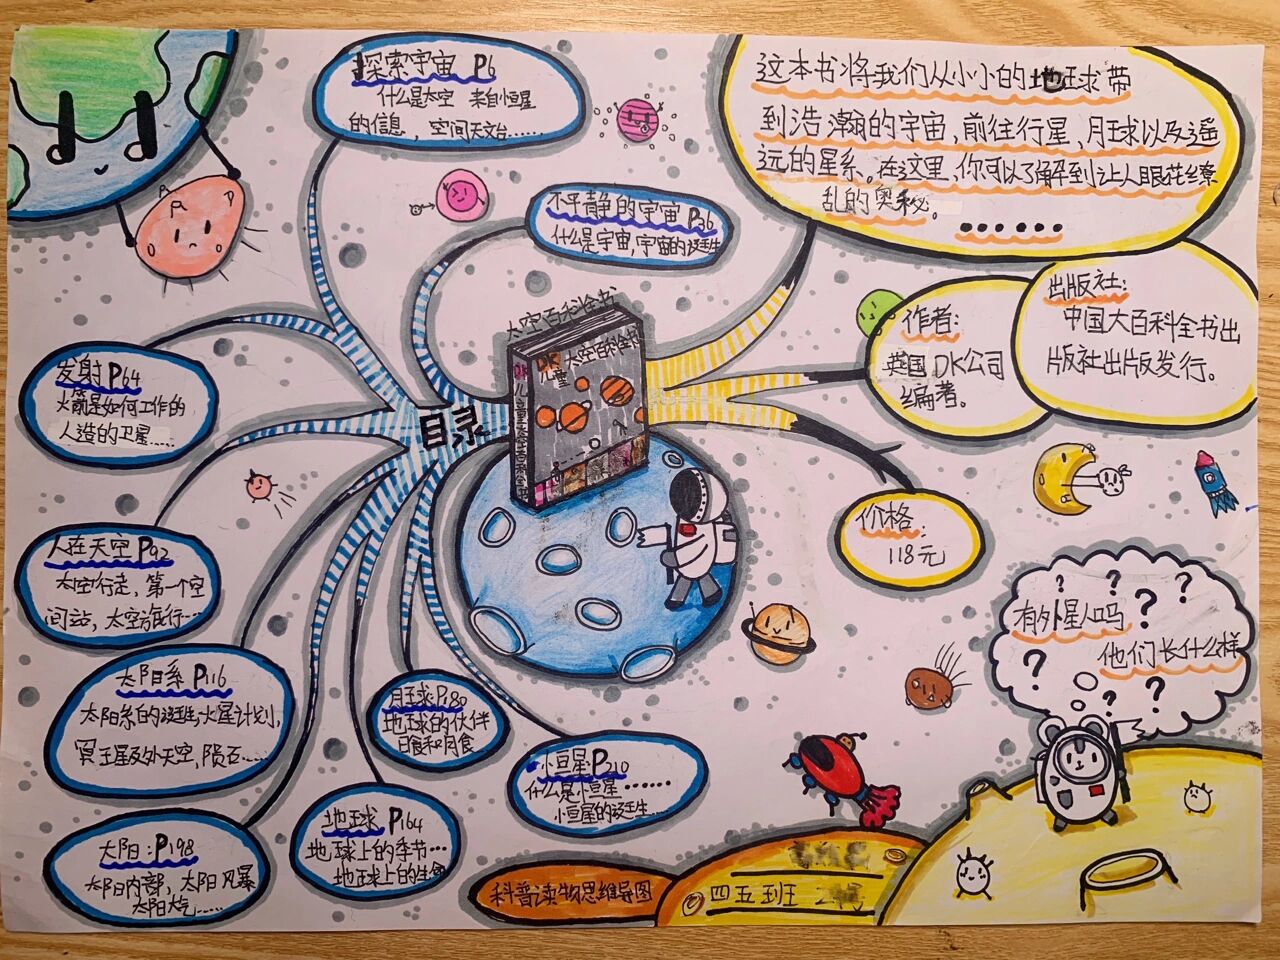 探索宇宙 P6
什么是太空 来自小恒星
的信息，空间天文台……
不平静的宇宙 P36
什么是宇宙，宇宙的诞生
这本书将我们从小小的地球带
到浩瀚的宇宙，前往行星，月球以及遥
远的星系。在这里，你可以了解到让人眼花缭
乱的奥秘。
……
作者：
英国DK公司
编著。
出版社：
中国大百科全书出
版社出版发行。
价格：
118元
太空百科全书
DK 太空百科全书
儿童
DK儿童太空百科全书
目录
发射 P64
火箭是如何工作的
人造的卫星……
人在天空 P92
太空行走，第一个空
间站，太空旅行…
太阳系 P116
太阳系的诞生，火星计划，
冥王星及外天空，陨石……
太阳：P198
太阳内部，太阳风暴
太阳大气……
地球 P164
地球上的季节…
地球上的生命
月球：P180
地球的伙伴
日食和月食
小恒星 P210
什么是小恒星……
小恒星的诞生…
有外星人吗
他们长什么样
? ? ? ? ? ? ?
科普读物思维导图
四五班